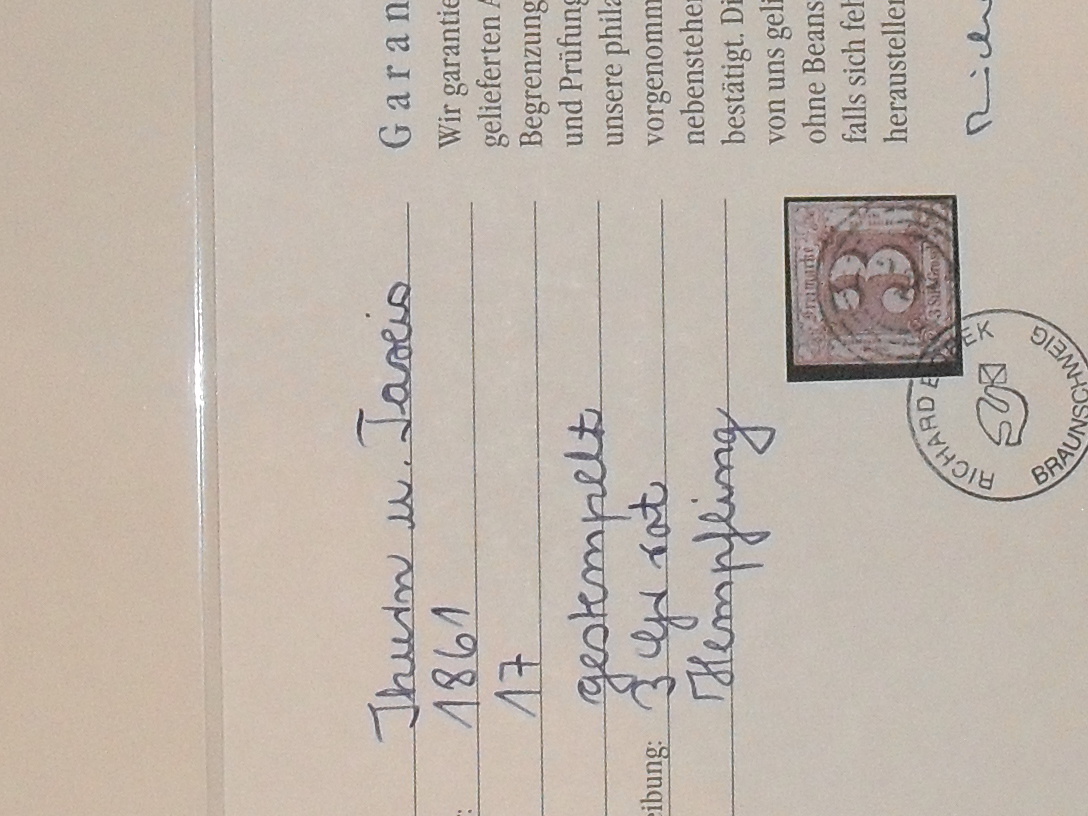 Thurn u. Taxis
1861
17
gestempelt
eibung: 3 Sgr rot
Hempfling
Garan
Wir garantie
gelieferten A
Begrenzung
und Prüfung
unsere phila
vorgenomm
nebensteher
bestätigt. Di
von uns geli
ohne Beans
falls sich feh
herausteller
Freimarke
3
3 Silb. Grosch
RICHARD B REK
BRAUNSCHWEIG